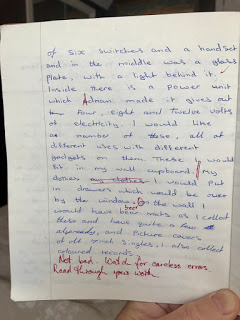 of six switches and a handset
and in the middle was a glass
plate, with a light behind it.
Inside there is a power unit
which Adrian made it gives out
four, eight and twelve volts
of electricity. I would like
a number of these, all at
different uses with different
gadgets on them. These I would
fit in my wall cupboard. My
clothes I would put
in drawers which would be over
by the window. On the wall I
beer
would have beer mats as I collect
these and have quite a few
already, and picture covers
of old singles, I also collect
coloured records.
Not bad. Watch for careless errors.
Read through your work.